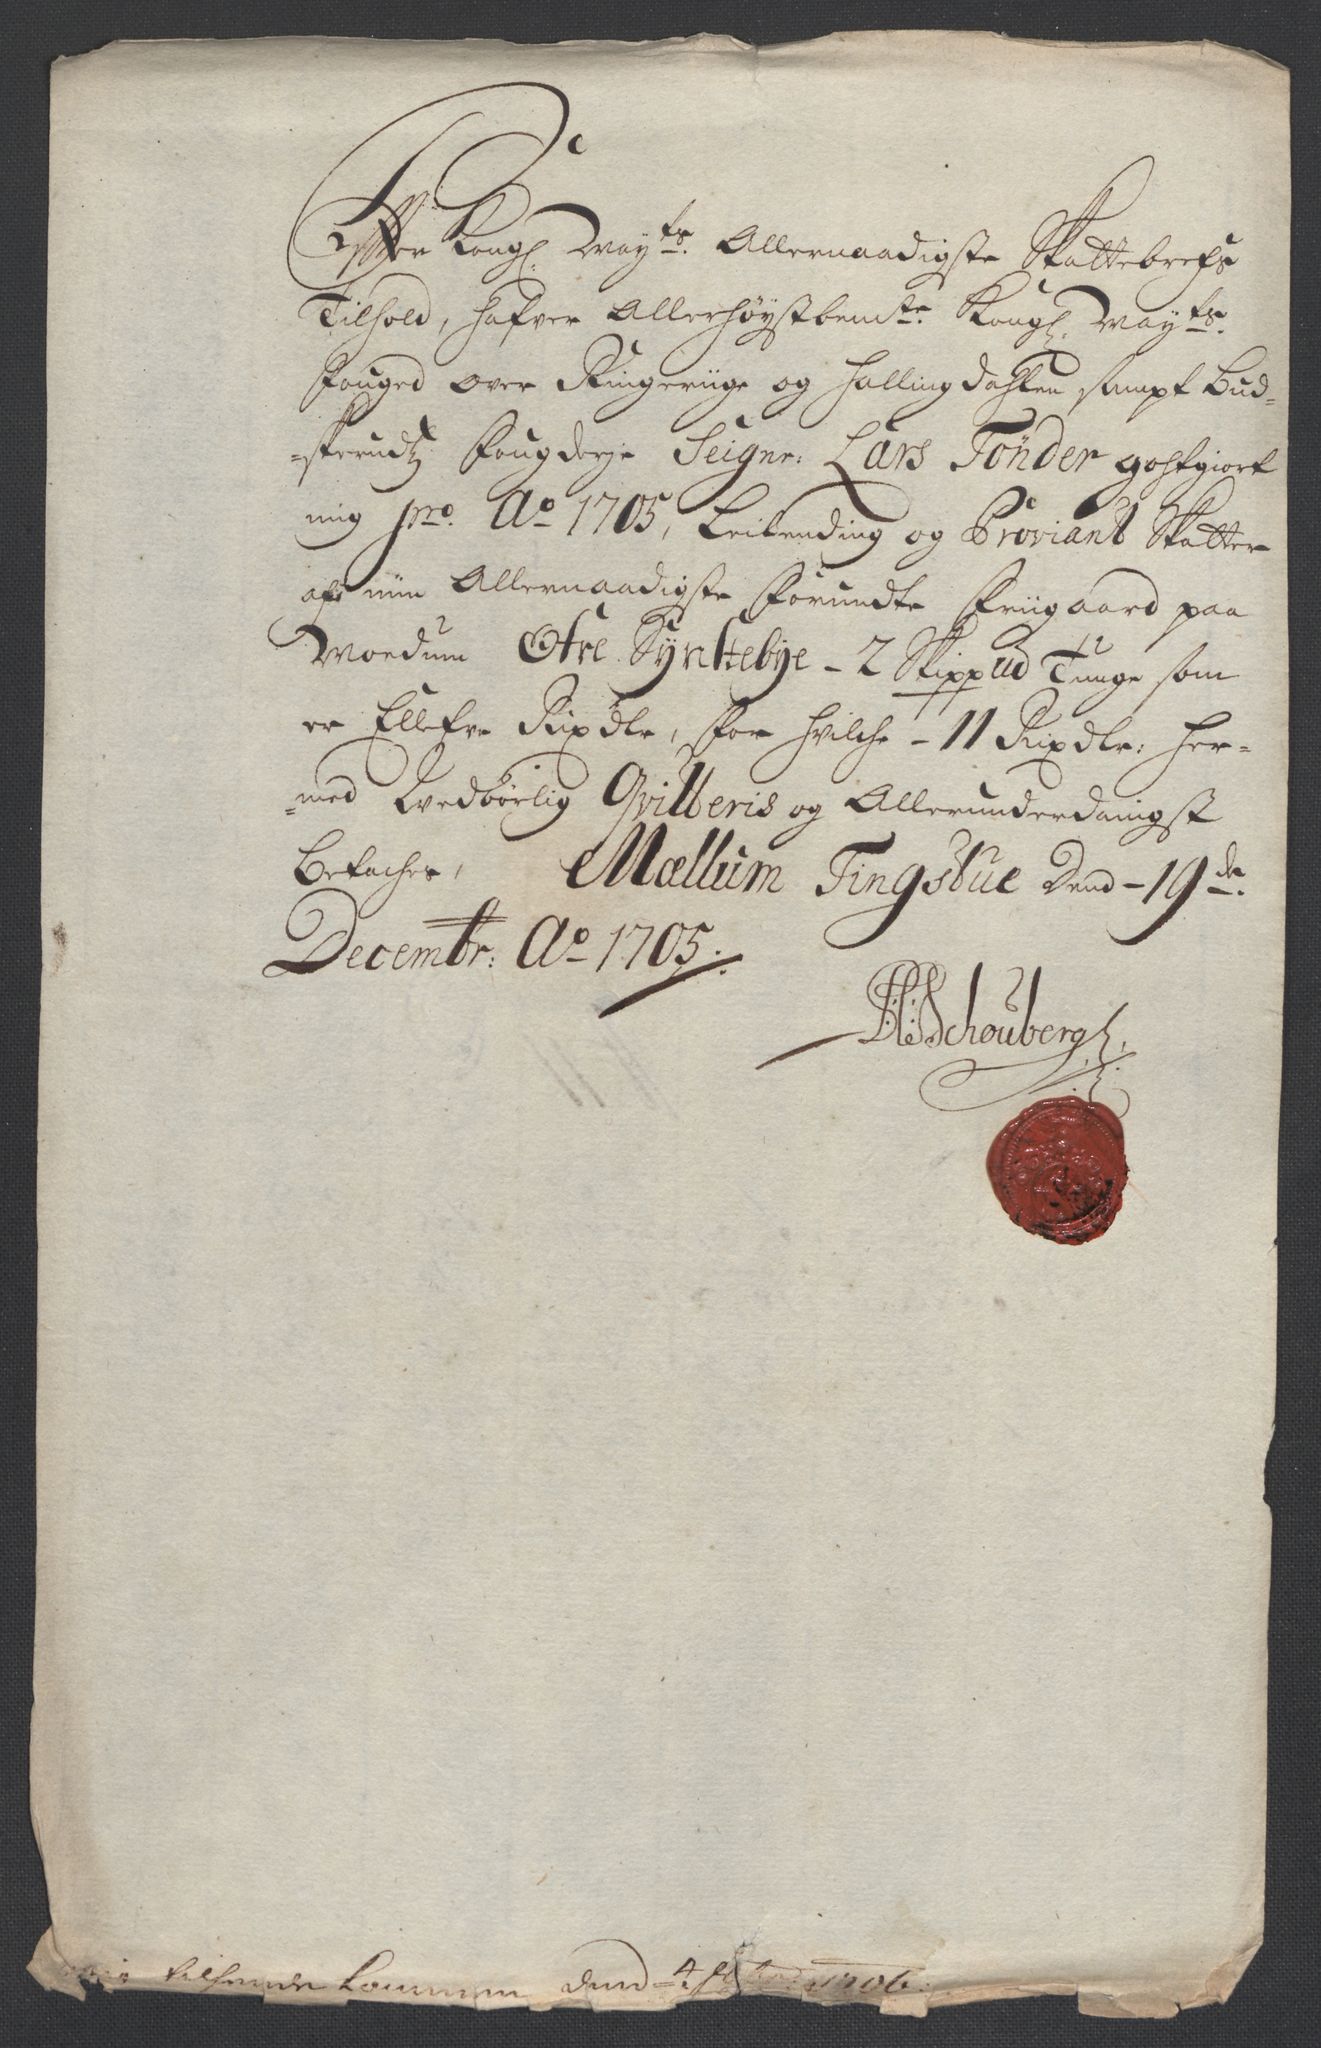 Effter Kongl. May.ts. Allernaadigste Skattebrefs
Tilhold, hafver Allerhøystbem.te. Kongl. May.ts.
Fouged over Ringeriige og Hallingdahlen sampt Bud=
=skerudtz Fougderje Seignr: Lars Tönder godtgiort
mig pro. Ao 1705, Leilending og Proviant Skatter
af min Allernaadigste Forundte Friigaard paa
Moedum Øfre Syndtebye - 2 Skippud Tunge som
er Ellefve Rixdlr, for hvilche - 11 Rixdlr: her=
=med Wedbörlig Qvitteris og Allerunderdanigst
Betaches, Mællum Tingstue Dend - 19de.
Decembr: Ao 1705.
Schouberg
tilhende kommen dend 4 1706.